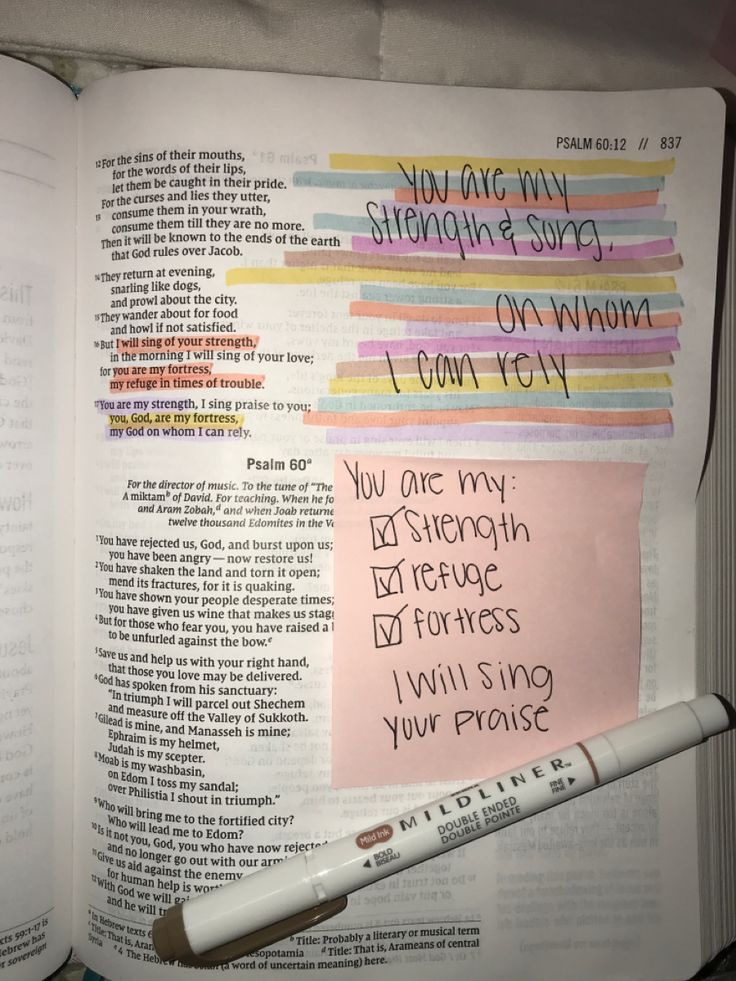 PSALM 60:12 // 837
12 For the sins of their mouths,
for the words of their lips,
let them be caught in their pride.
For the curses and lies they utter,
13 consume them in your wrath,
consume them till they are no more.
Then it will be known to the ends of the earth
that God rules over Jacob.
14 They return at evening,
snarling like dogs,
and prowl about the city.
15 They wander about for food
and howl if not satisfied.
16 But I will sing of your strength,
in the morning I will sing of your love;
for you are my fortress,
my refuge in times of trouble.
17 You are my strength, I sing praise to you;
you, God, are my fortress,
my God on whom I can rely.
You are my
Strength & Song,
on whom
I can rely
Psalm 60a
For the director of music. To the tune of "The
A miktamb of David. For teaching. When he
and Aram Zobah,d and when Joab
twelve thousand Edomites in the
1 You have rejected us, God, and burst upon us;
you have been angry—now restore us!
2 You have shaken the land and torn it open;
mend its fractures, for it is quaking.
3 You have shown your people desperate times;
you have given us wine that makes us
4 But for those who fear you, you have raised a
to be unfurled against the bow.e
5 Save us and help us with your right hand,
that those you love may be delivered.
6 God has spoken from his sanctuary:
"In triumph I will parcel out Shechem
and measure off the Valley of Sukkoth.
7 Gilead is mine, and Manasseh is mine;
Ephraim is my helmet,
Judah is my scepter.
8 Moab is my washbasin,
on Edom I toss my sandal;
over Philistia I shout in triumph."
9 Who will bring me to the fortified city?
Who will lead me to Edom?
10 Is it not you, God, you who have now
and no longer go out with our
11 Give us aid against the enemy
for human help is
12 With God we will
and he will
You are my:
Strength
refuge
fortress
I will sing
your praise
Mild Ink MILDLINER™
DOUBLE ENDED
DOUBLE POINTE
BOLD
BISEAU
FINE
FINE
a In Hebrew texts
b Title: Probably a literary or musical term
c Title: That is, d Title: That is, Arameans of central
Syria e 4 The (a word of uncertain meaning) here.
59:1-17 is
sovereign